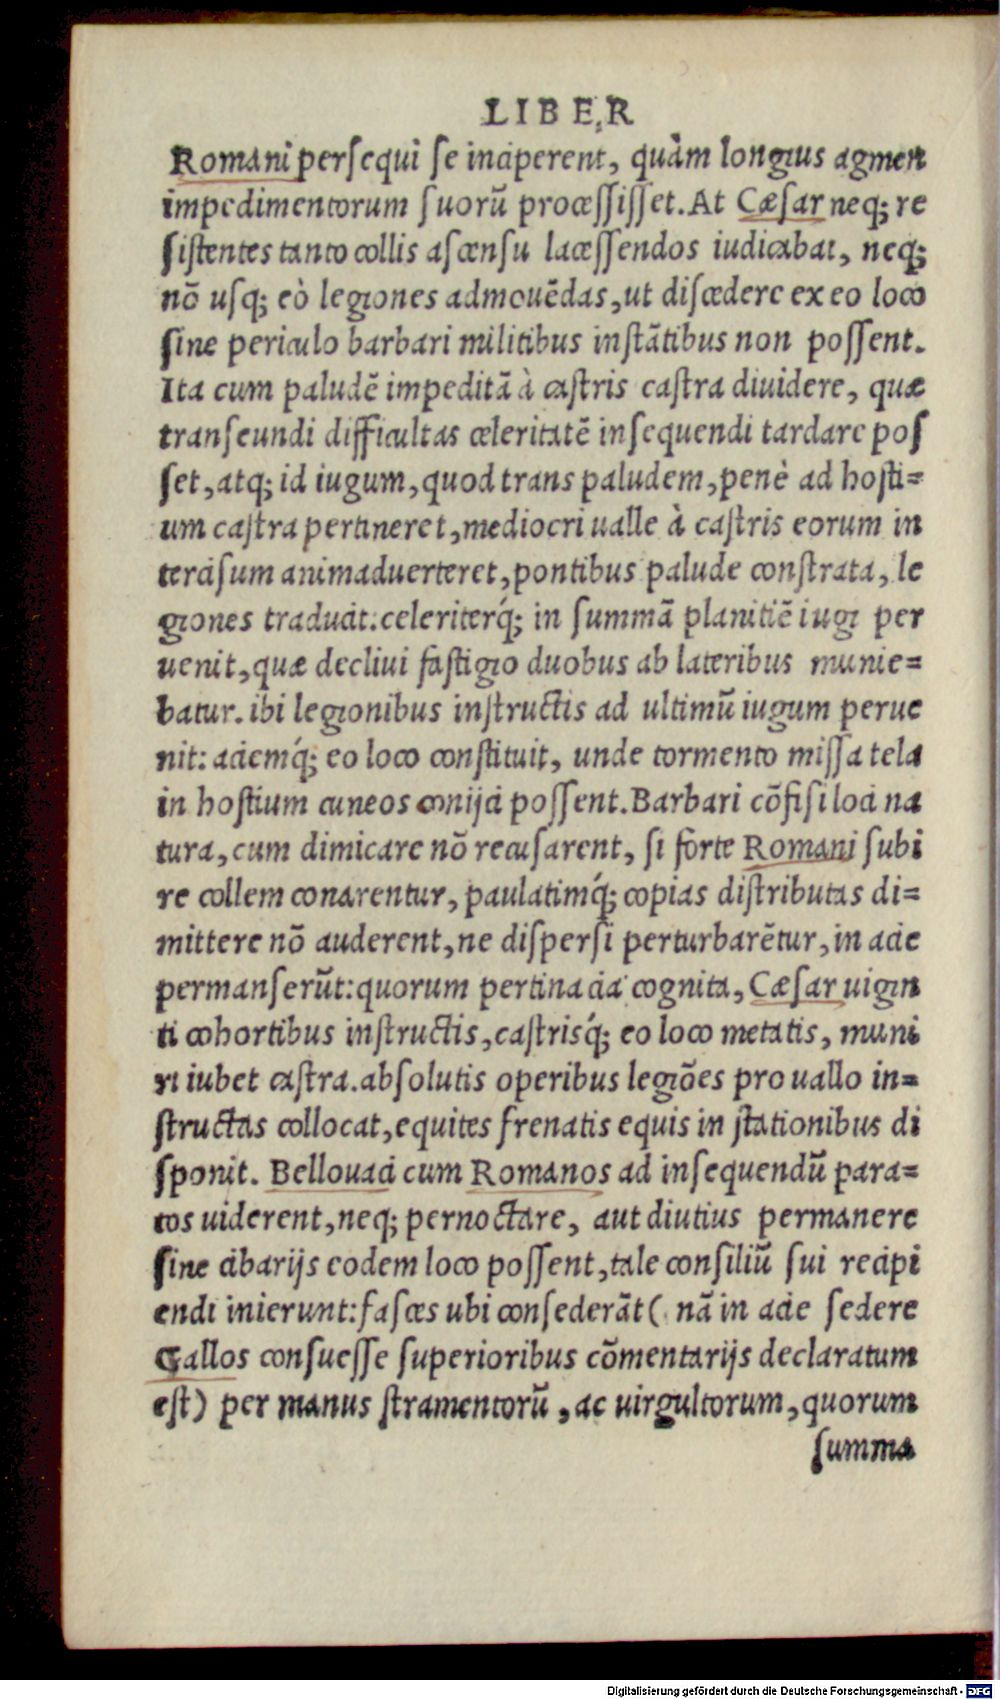 LIBER
Romani persequi se inciperent, quàm longius agmen
impedimentorum suorũ processisset. At Cæsar neq; re
sistentes tanto collis ascensu lacessendos iudicabat, neq;
nõ usq; eò legiones admouẽdas, ut discedere ex eo loco
sine periculo barbari militibus instãtibus non possent.
Ita cum paludẽ impeditã à castris castra diuidere, quæ
transeundi difficultas celeritatẽ insequendi tardare pos
set, atq; id iugum, quod trans paludem, penè ad hosti=
um castra pertineret, mediocri ualle à castris eorum in
tercisum animaduerteret, pontibus palude constrata, le
giones traducit. celeriterq́; in summã planitiẽ iugi per
uenit, quæ decliui fastigio duobus ab lateribus munie=
batur. ibi legionibus instructis ad ultimũ iugum perue
nit: aciemq́; eo loco constituit, unde tormento missa tela
in hostium cuneos conijci possent. Barbari cõfisi loci na
tura, cum dimicare nõ recusarent, si forte Romani subi
re collem conarentur, paulatimq́; copias distributas di=
mittere nõ auderent, ne dispersi perturbarẽtur, in acie
permanserũt: quorum pertinacia cognita, Cæsar uigin
ti cohortibus instructis, castrisq́; eo loco metatis, muni
ri iubet castra. absolutis operibus legiões pro uallo in=
structas collocat, equites frenatis equis in stationibus di
sponit. Bellouaci cum Romanos ad insequendũ para=
tos uiderent, neq; pernoctare, aut diutius permanere
sine cibarijs eodem loco possent, tale consiliũ sui recipi
endi inierunt: fasces ubi consederãt ( nã in acie sedere
Gallos consuesse superioribus cõmentarijs declaratum
est) per manus stramentorũ, ac uirgultorum, quorum
summa
Digitalisierung gefördert durch die Deutsche Forschungsgemeinschaft - DFG